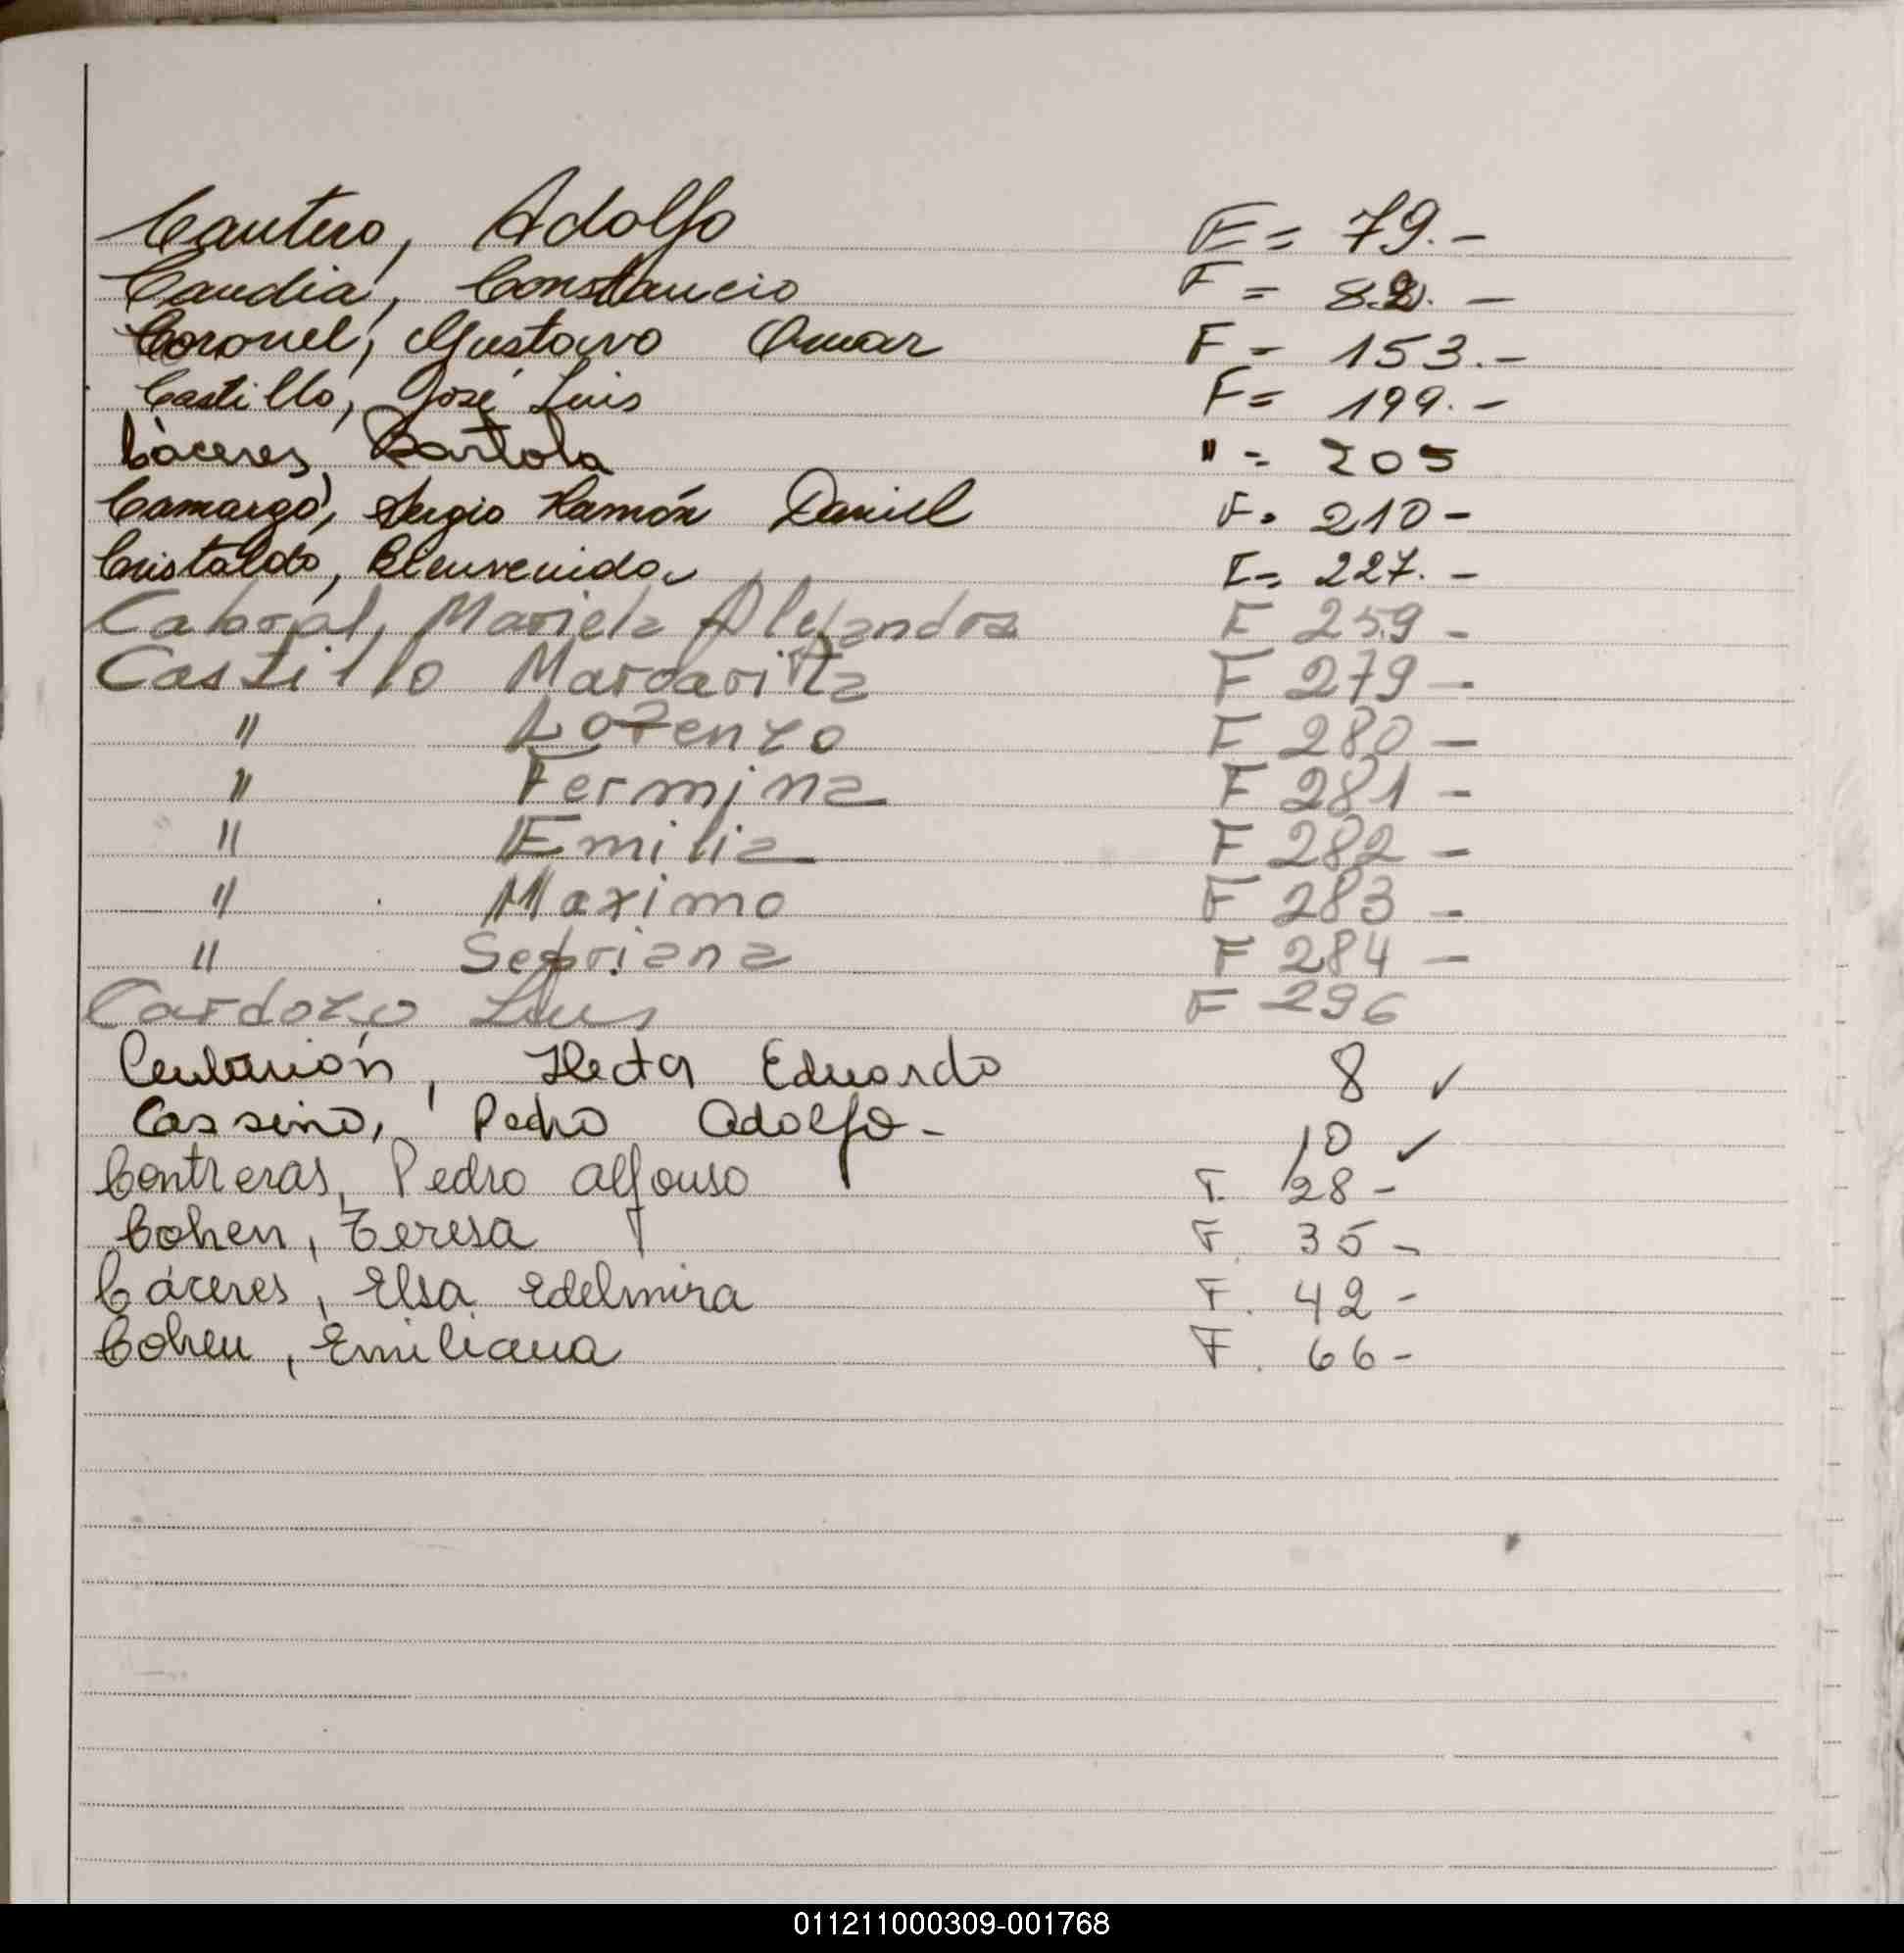 Cantero, Adolfo F = 79.-
Candia, Constancio F = 82.-
Coronel, Gustavo Omar F = 153.-
Castillo, José Luis F = 199.-
Càceres, Bartola " = 205
Camargo, Sergio Ramón Daniel F. 210-
Cristaldo, Bienvenida F= 227.-
Cabral, Mariela Alejandra F 259-
Castillo Margarita F 279-
" Lorenzo F 280-
" Fermina F 281-
" Emilia F 282-
" Maximo F 283-
" Sepriana F 284-
Cardozo Luis F 296
Centurión, Hector Eduardo 8 ✓
Cassino, Pedro Adolfo- 10 ✓
Contreras, Pedro Alfonso F. 28-
Cohen, Teresa F. 35-
Cáceres, Elsa Edelmira F. 42-
Cohen, Emiliana F. 66-
011211000309-001768